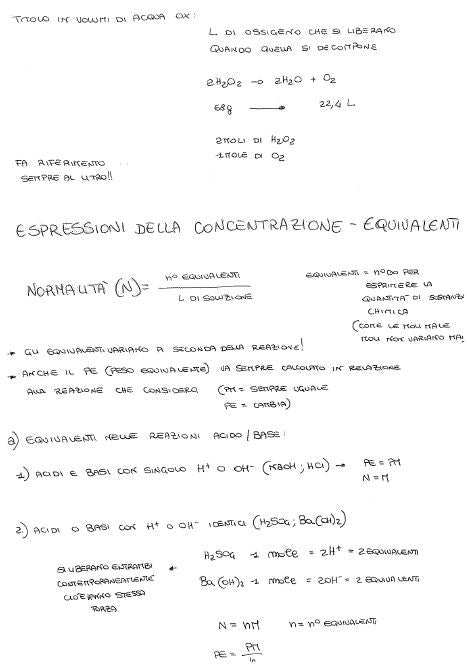 TITOLO IN VOLUMI DI ACQUA OX:
L DI OSSIGENO CHE SI LIBERANO
QUANDO QUELLA SI DECOMPONE
2H₂O₂ → 2H₂O + O₂
68g → 22,4 L
2 MOLI DI H₂O₂
1 MOLE DI O₂
FA RIFERIMENTO
SEMPRE AL LITRO!!
ESPRESSIONI DELLA CONCENTRAZIONE - EQUIVALENTI
NORMALITÀ (N) = n° EQUIVALENTI / L DI SOLUZIONE
EQUIVALENTI = MODO PER
ESPRIMERE LA
QUANTITÀ DI SOSTANZA
CHIMICA
(COME LE MOLI MA LE
MOLI NON VARIANO MAI
* GLI EQUIVALENTI VARIANO A SECONDA DELLA REAZIONE!
* ANCHE IL PE (PESO EQUIVALENTE) VA SEMPRE CALCOLATO IN RELAZIONE
ALLA REAZIONE CHE CONSIDERO (PM = SEMPRE UGUALE
PE = CAMBIA)
a) EQUIVALENTI NELLE REAZIONI ACIDO/BASE:
1) ACIDI E BASI CON SINGOLO H⁺ O OH⁻ (NaOH; HCl) → PE = PM
N = M
2) ACIDI O BASI CON H⁺ O OH⁻ IDENTICI (H₂SO₄; Ba(OH)₂)
H₂SO₄ - 1 mole = 2H⁺ = 2 EQUIVALENTI
SI LIBERANO ENTRAMBI
CONTEMPORANEAMENTE
CIOÈ HANNO STESSA
FORZA
Ba(OH)₂ - 1 mole = 2OH⁻ = 2 EQUIVALENTI
N = nM n = n° EQUIVALENTI
PE = PM / n